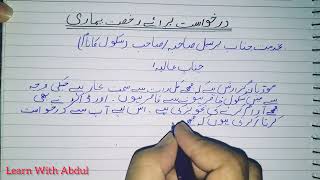 درخواست برائے رخصت بیماری
بخدمت جناب پرنسپل صاحبہ / صاحب (سکول کا نام)
جناب عالیہ!
گزارش ہے کہ مجھے رات سے سخت بخار ہے جسکی وجہ
سے میں سکول حاضر ہونے سے قاصر ہوں۔ اور ڈاکٹر نے بھی
مجھے آرام کرنے کی تجویز دی ہے۔ اس لیے آپ سے درخواست
کرتا / کرتی ہوں کہ مجھے
Learn With Abdul